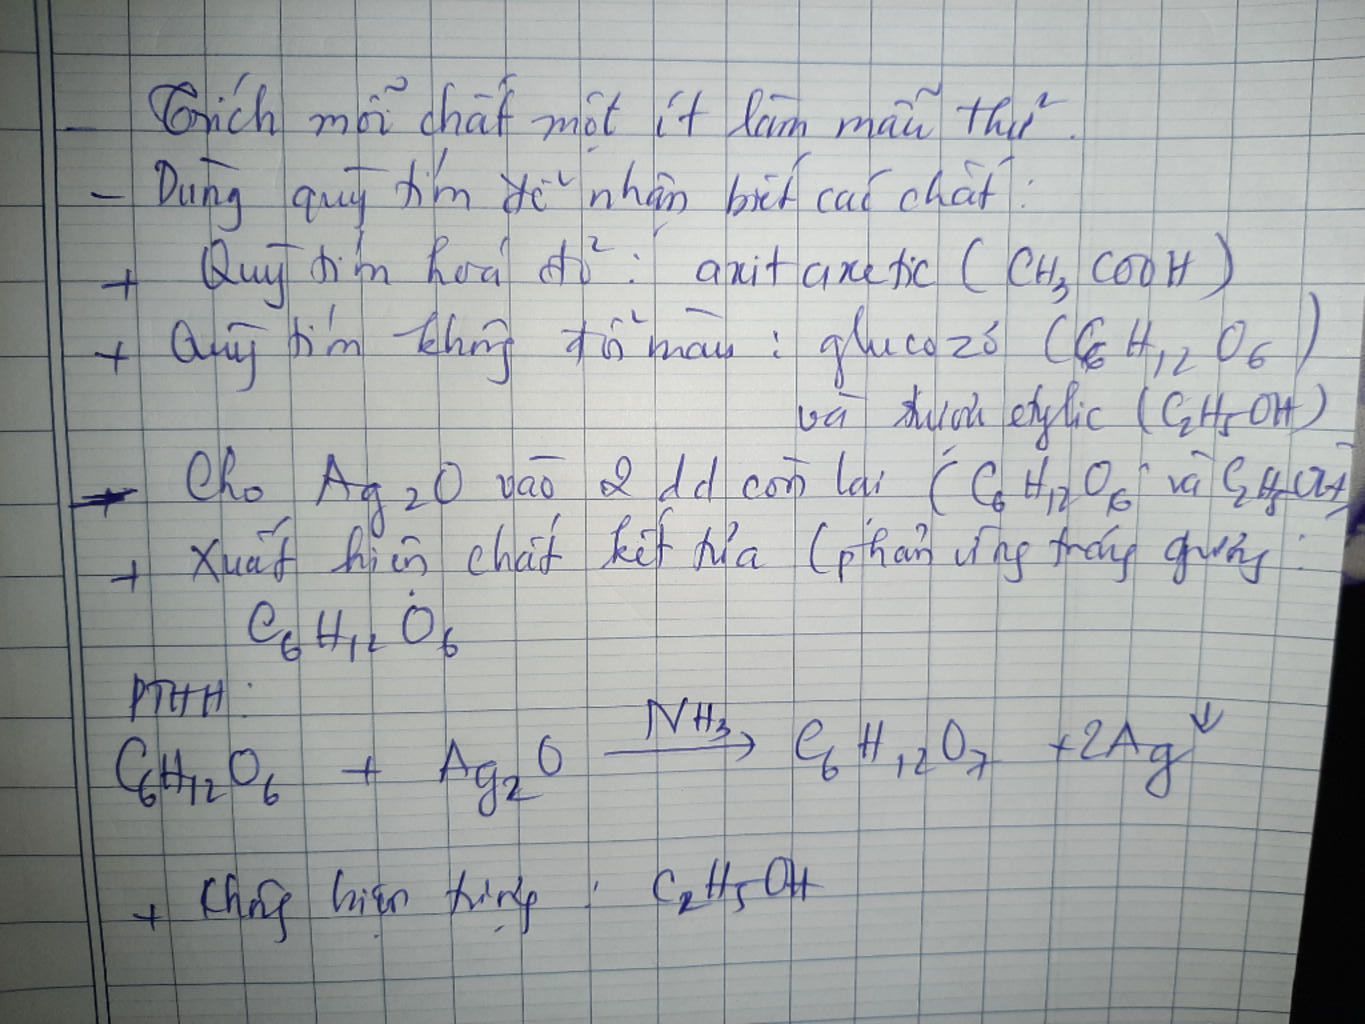 - Trích mỗi chất một ít làm mẫu thử.
- Dùng quỳ tím để nhận biết các chất:
+ Quỳ tím hoá đỏ: axit axetic (CH₃COOH)
+ Quỳ tím không đổi màu: glucozơ (C₆H₁₂O₆)
và rượu etylic (C₂H₅OH)
- Cho Ag₂O vào 2 dd còn lại (C₆H₁₂O₆ và C₂H₅OH)
+ Xuất hiện chất kết tủa (phản ứng tráng gương:
C₆H₁₂O₆
PTHH:
C₆H₁₂O₆ + Ag₂O —NH₃→ C₆H₁₂O₇ + 2Ag↓
+ Không hiện tượng: C₂H₅OH